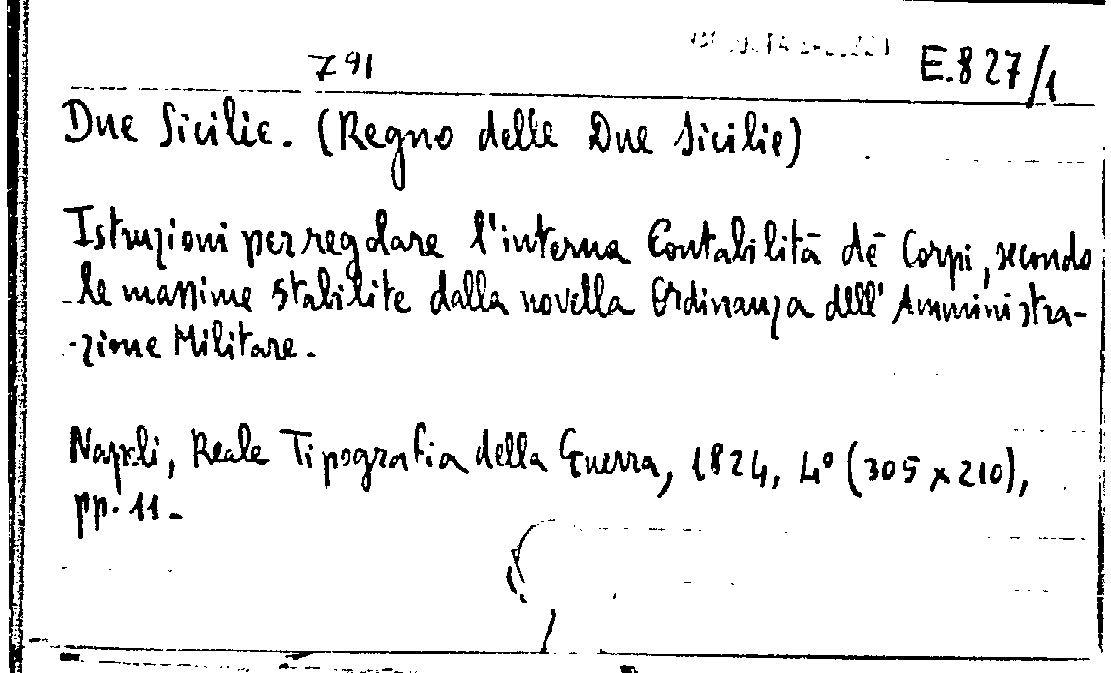 791
E.827/1
Due Sicilie. (Regno delle Due Sicilie)
Istruzioni per regolare l'interna Contabilità de' Corpi, secondo
le massime stabilite dalla novella Ordinanza dell'Amministra-
-zione Militare.
Napoli, Reale Tipografia della Guerra, 1824, 4° (305 x 210),
pp. 11.